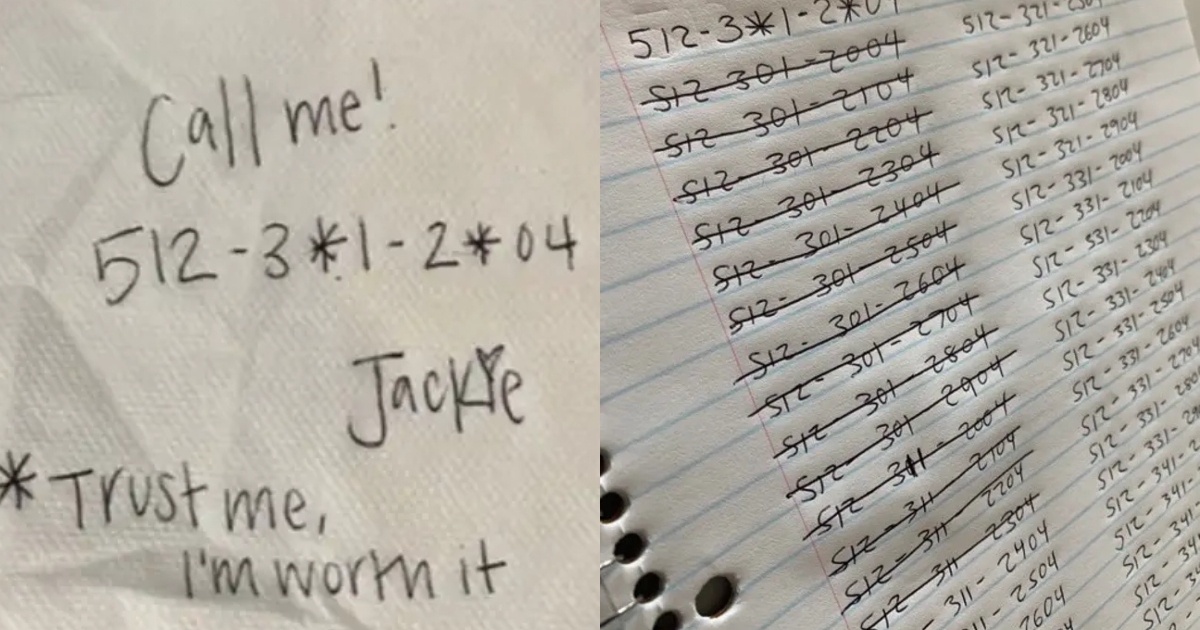 Call me!
512-3*1-2*04
Jackie
*Trust me,
I'm worth it
512-3*1-2*0
512-301-2004
512-301-2104
512-301-2204
512-301-2304
512-301-2404
512-301-2504
512-301-2604
512-301-2704
512-301-2804
512-301-2904
512-311-2004
512-311-2104
512-311-2204
512-311-2304
311-2404
311-2504
2604
512-321-2504
512-321-2604
512-321-2704
512-321-2804
512-321-2904
512-331-2004
512-331-2104
512-331-2204
512-331-2304
512-331-2404
512-331-2504
512-331-2604
512-331-2704
512-331-280
512-341-2
512-341-
512-341
512-34